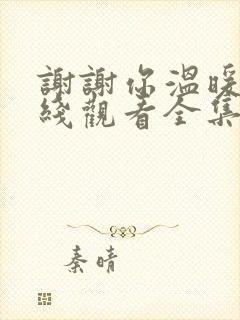 謝謝你溫暖
綫觀看全集
秦晴